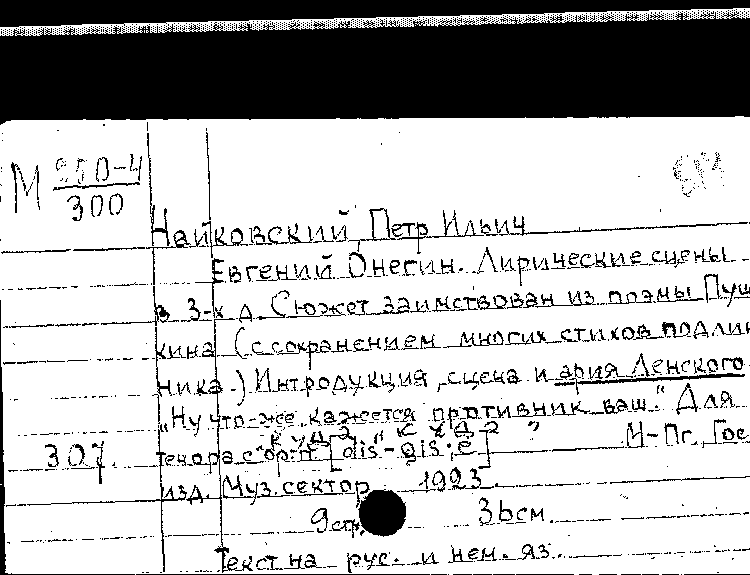 М 250-4
300
Чайковский, Петр Ильич
Евгений Онегин. Лирические сцены
в 3-х д. Сюжет заимствован из поэмы Пуш
кина (с сохранением многих стихов подлин
ника.) Интродукция, сцена и ария Ленского
„Ну что-же, кажется противник ваш." Для
„Куда, куда"
307. тенора с орг. [dis-gis; e] М-Пг, Гос
изд. Муз. сектор 1923.
9 стр. 36см.
Текст на рус. и нем. яз.